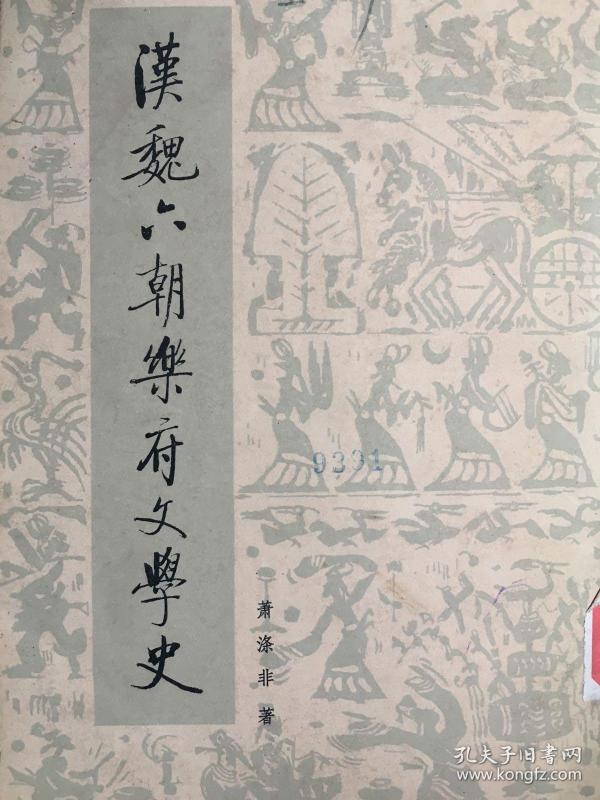 漢魏六朝樂府文學史
9391
蕭涤非著
孔夫子旧书网
www.kongfz.com